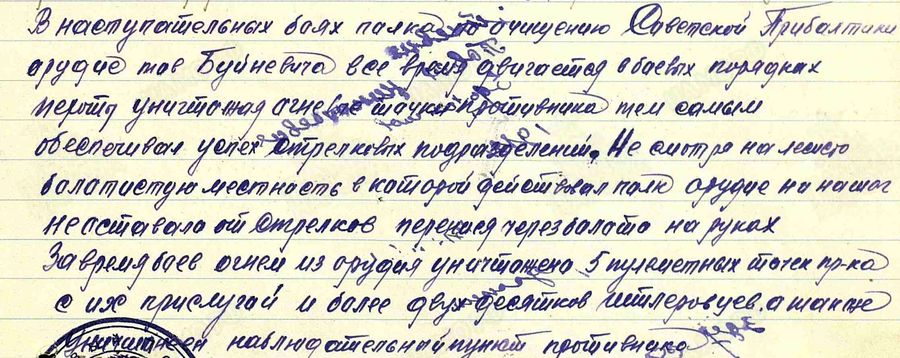 В наступательных боях палка по очищению Советской Прибалтики
орудие тов Буйневича все время двигается в боевых порядках
пехоты уничтожая огневые точки противника тем самым
обеспечивал успех стрелковых подразделений. Не смотря на лесисто
болатистую местность в каторой действовал полк орудие ни на шаг
не оставало от стрелков перенося через балата на руках
За время боев огнем из орудия уничтожено 5 пулеметных точек пр-ка
с их прислугай и более двух десятков гитлеровцев. а также
уничтожен наблюдательный пункт противника